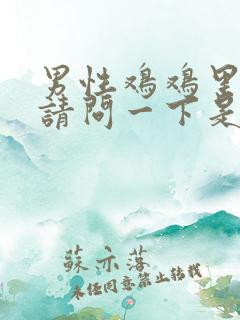 男性鸡鸡里
請問一下是
蘇亦落
未经同意禁止转载